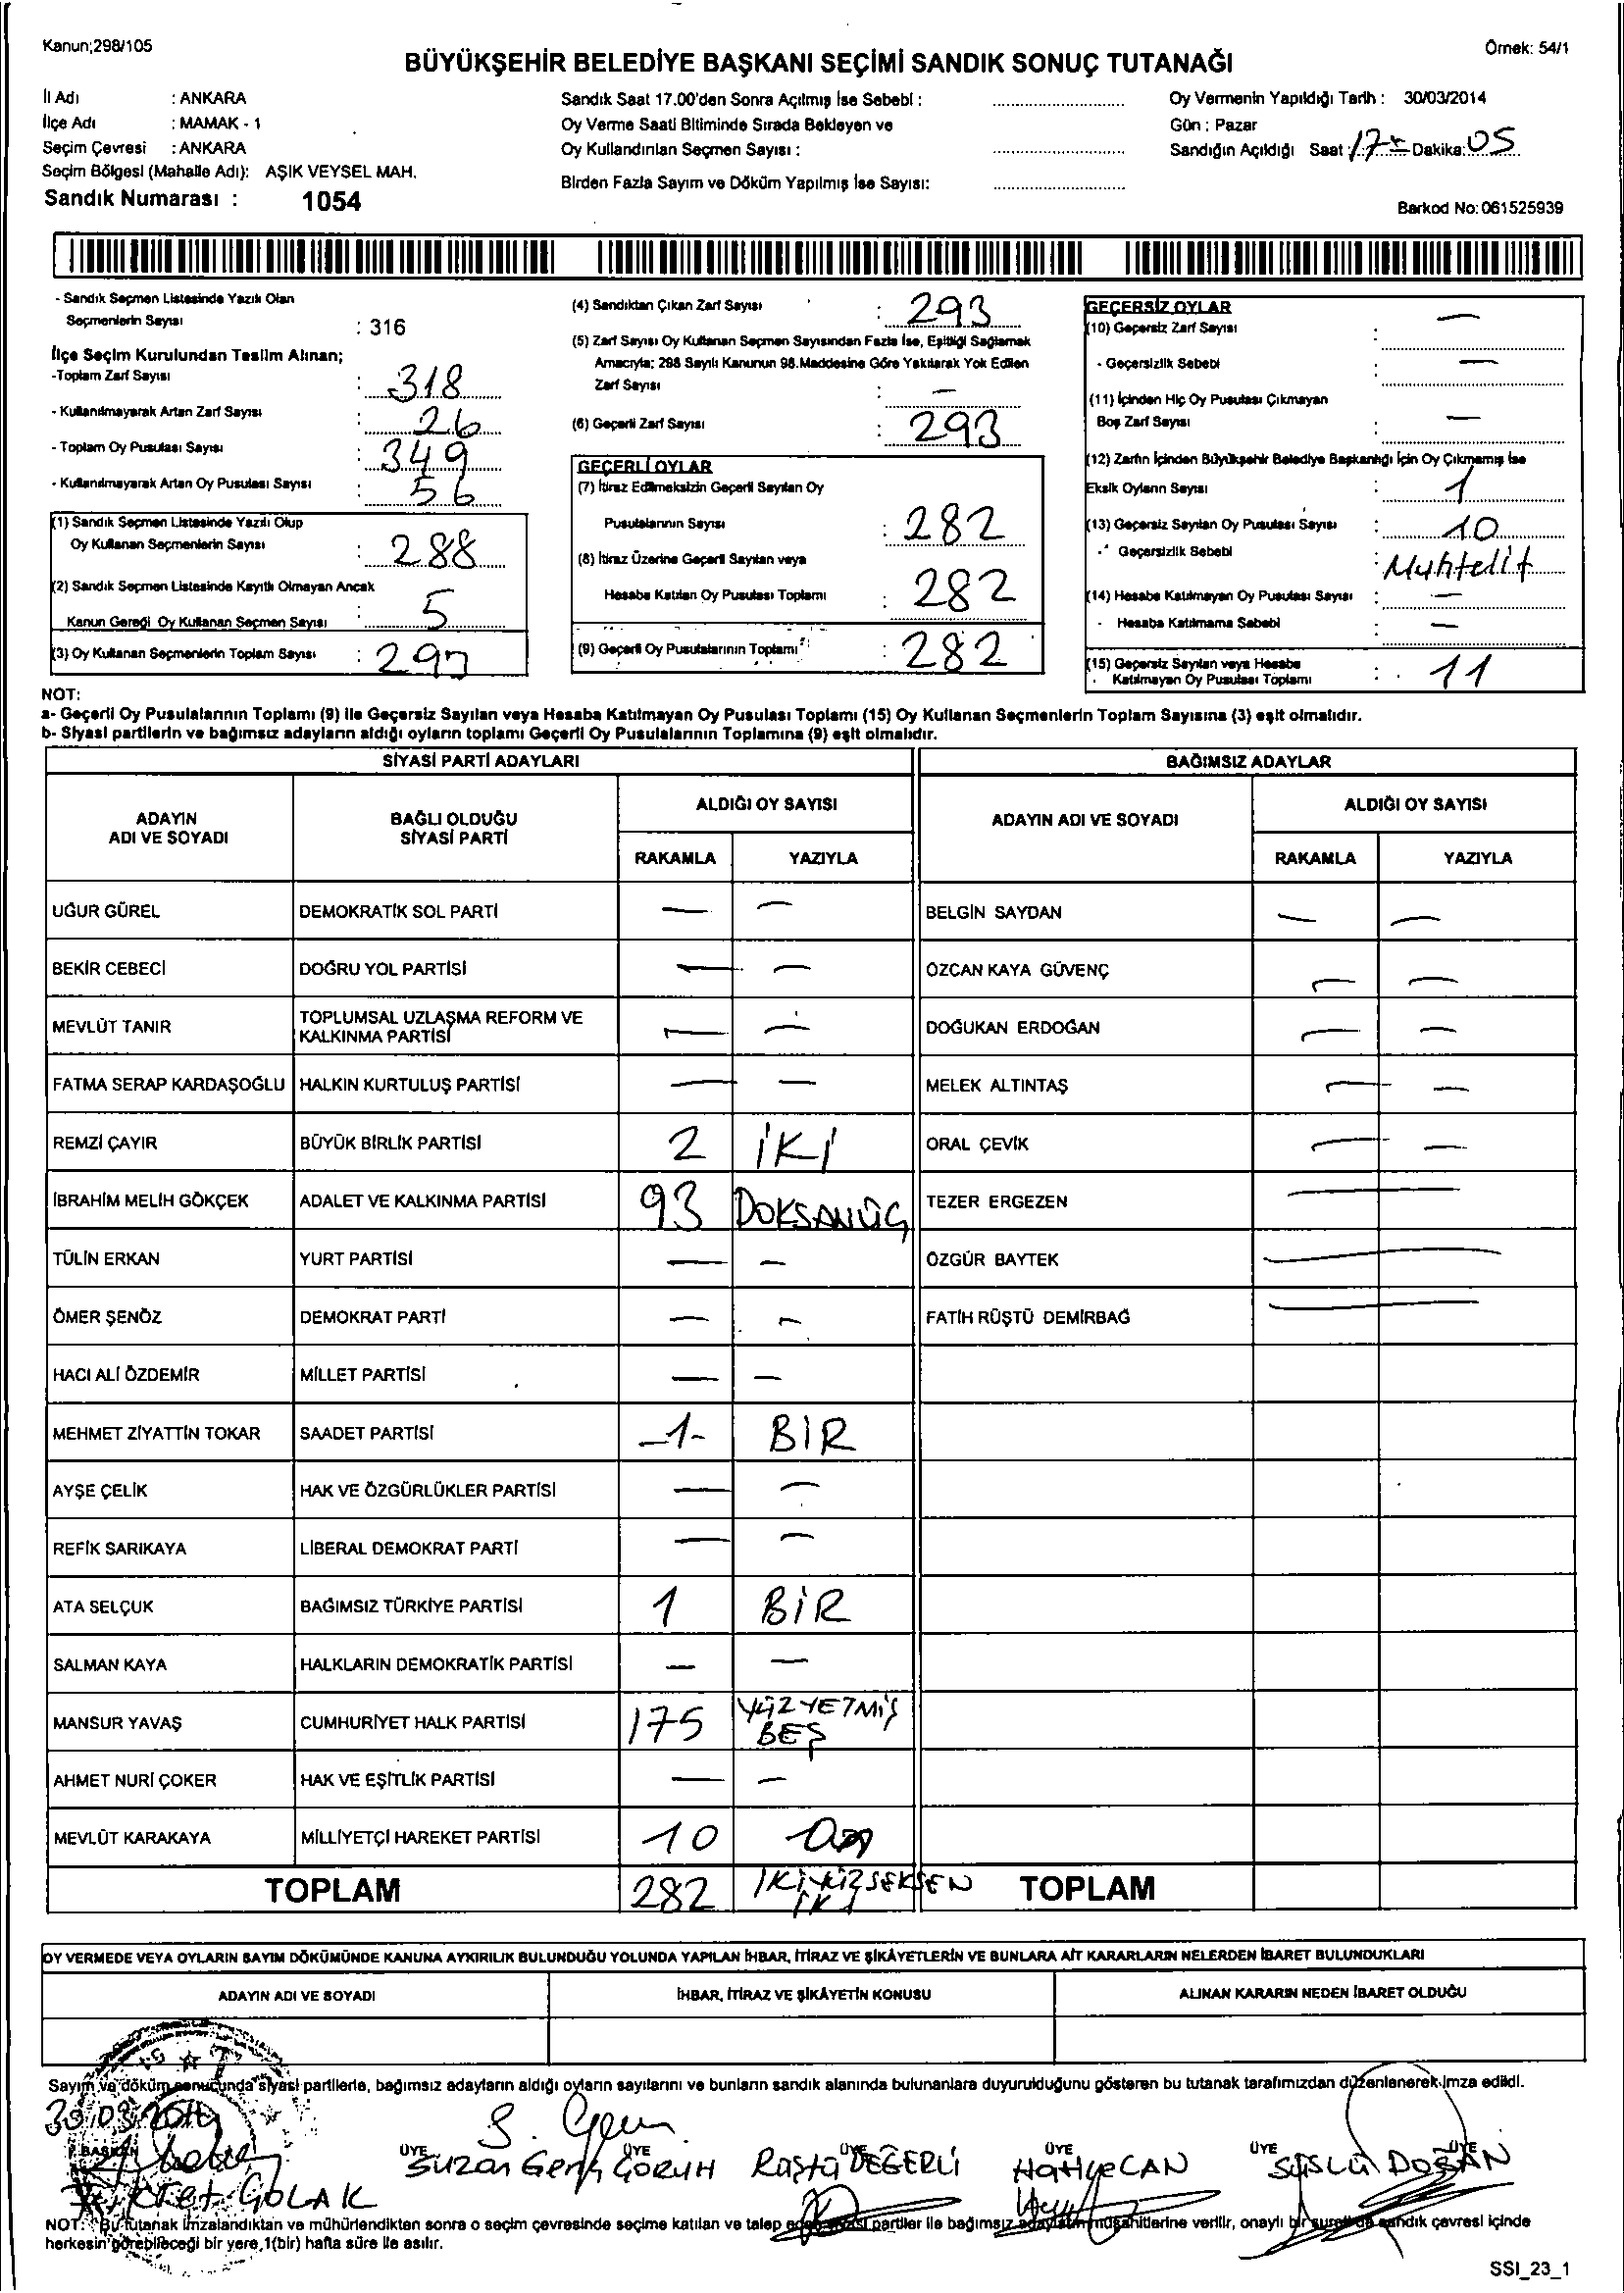 Kanun;298/105
Örnek: 54/1
BÜYÜKŞEHİR BELEDİYE BAŞKANI SEÇİMİ SANDIK SONUÇ TUTANAĞI
İl Adı : ANKARA
İlçe Adı : MAMAK - 1
Seçim Çevresi : ANKARA
Seçim Bölgesi (Mahalle Adı): AŞIK VEYSEL MAH.
Sandık Numarası : 1054
Sandık Saat 17.00'den Sonra Açılmış İse Sebebi :
Oy Verme Saati Bitiminde Sırada Bekleyen ve
Oy Kullandırılan Seçmen Sayısı :
Birden Fazla Sayım ve Döküm Yapılmış İse Sayısı:
Oy Vermenin Yapıldığı Tarih : 30/03/2014
Gün : Pazar
Sandığın Açıldığı Saat : 17 Dakika: 05
Barkod No: 061525939
- Sandık Seçmen Listesinde Yazılı Olan
Seçmenlerin Sayısı : 316
İlçe Seçim Kurulundan Teslim Alınan;
-Toplam Zarf Sayısı : 318
- Kullanılmayarak Artan Zarf Sayısı : 26
- Toplam Oy Pusulası Sayısı : 349
- Kullanılmayarak Artan Oy Pusulası Sayısı : 56
(1) Sandık Seçmen Listesinde Yazılı Olup
Oy Kullanan Seçmenlerin Sayısı : 288
(2) Sandık Seçmen Listesinde Kayıtlı Olmayan Ancak
Kanun Gereği Oy Kullanan Seçmen Sayısı : 5
(3) Oy Kullanan Seçmenlerin Toplam Sayısı : 293
(4) Sandıktan Çıkan Zarf Sayısı : 293
(5) Zarf Sayısı Oy Kullanan Seçmen Sayısından Fazla İse, Eşitliği Sağlamak
Amacıyla; 298 Sayılı Kanunun 98.Maddesine Göre Yakılarak Yok Edilen
Zarf Sayısı : —
(6) Geçerli Zarf Sayısı : 293
GEÇERLİ OYLAR
(7) İtiraz Edilmeksizin Geçerli Sayılan Oy
Pusulalarının Sayısı : 282
(8) İtiraz Üzerine Geçerli Sayılan veya
Hesaba Katılan Oy Pusulası Toplamı : 282
(9) Geçerli Oy Pusulalarının Toplamı : 282
GEÇERSİZ OYLAR
(10) Geçersiz Zarf Sayısı : —
- Geçersizlik Sebebi : —
(11) İçinden Hiç Oy Pusulası Çıkmayan
Boş Zarf Sayısı : —
(12) Zarfın İçinden Büyükşehir Belediye Başkanlığı İçin Oy Çıkmamış İse
Eksik Oyların Sayısı : 1
(13) Geçersiz Sayılan Oy Pusulası Sayısı : 10
- Geçersizlik Sebebi : Muhtelif
(14) Hesaba Katılmayan Oy Pusulası Sayısı : —
- Hesaba Katılmama Sebebi : —
(15) Geçersiz Sayılan veya Hesaba
Katılmayan Oy Pusulası Toplamı : 11
NOT:
a- Geçerli Oy Pusulalarının Toplamı (9) ile Geçersiz Sayılan veya Hesaba Katılmayan Oy Pusulası Toplamı (15) Oy Kullanan Seçmenlerin Toplam Sayısına (3) eşit olmalıdır.
b- Siyasi partilerin ve bağımsız adayların aldığı oyların toplamı Geçerli Oy Pusulalarının Toplamına (9) eşit olmalıdır.
SİYASİ PARTİ ADAYLARI
BAĞIMSIZ ADAYLAR
ADAYIN ADI VE SOYADI
BAĞLI OLDUĞU SİYASİ PARTİ
ALDIĞI OY SAYISI
RAKAMLA YAZIYLA
ADAYIN ADI VE SOYADI
ALDIĞI OY SAYISI
RAKAMLA YAZIYLA
UĞUR GÜREL DEMOKRATİK SOL PARTİ — — BELGİN SAYDAN — —
BEKİR CEBECİ DOĞRU YOL PARTİSİ — — ÖZCAN KAYA GÜVENÇ — —
MEVLÜT TANIR TOPLUMSAL UZLAŞMA REFORM VE KALKINMA PARTİSİ — — DOĞUKAN ERDOĞAN — —
FATMA SERAP KARDAŞOĞLU HALKIN KURTULUŞ PARTİSİ — — MELEK ALTINTAŞ — —
REMZİ ÇAYIR BÜYÜK BİRLİK PARTİSİ 2 İKİ ORAL ÇEVİK — —
İBRAHİM MELİH GÖKÇEK ADALET VE KALKINMA PARTİSİ 93 DOKSANÜÇ TEZER ERGEZEN —
TÜLİN ERKAN YURT PARTİSİ — — ÖZGÜR BAYTEK —
ÖMER ŞENÖZ DEMOKRAT PARTİ — — FATİH RÜŞTÜ DEMİRBAĞ —
HACI ALİ ÖZDEMİR MİLLET PARTİSİ — —
MEHMET ZİYATTİN TOKAR SAADET PARTİSİ -1- BİR
AYŞE ÇELİK HAK VE ÖZGÜRLÜKLER PARTİSİ — —
REFİK SARIKAYA LİBERAL DEMOKRAT PARTİ — —
ATA SELÇUK BAĞIMSIZ TÜRKİYE PARTİSİ 1 BİR
SALMAN KAYA HALKLARIN DEMOKRATİK PARTİSİ — —
MANSUR YAVAŞ CUMHURİYET HALK PARTİSİ 175 YÜZYETMİŞ BEŞ
AHMET NURİ ÇOKER HAK VE EŞİTLİK PARTİSİ — —
MEVLÜT KARAKAYA MİLLİYETÇİ HAREKET PARTİSİ 10 On
TOPLAM 282 İKİYÜZSEKSEN İKİ TOPLAM
OY VERMEDE VEYA OYLARIN SAYIM DÖKÜMÜNDE KANUNA AYKIRILIK BULUNDUĞU YOLUNDA YAPILAN İHBAR, İTİRAZ VE ŞİKÂYETLERİN VE BUNLARA AİT KARARLARIN NELERDEN İBARET BULUNDUKLARI
ADAYIN ADI VE SOYADI İHBAR, İTİRAZ VE ŞİKÂYETİN KONUSU ALINAN KARARIN NEDEN İBARET OLDUĞU
Sayım ve döküm sonucunda siyasi partilerle, bağımsız adayların aldığı oyların sayılarını ve bunların sandık alanında bulunanlara duyurulduğunu gösteren bu tutanak tarafımızdan düzenlenerek imza edildi.
30.03.2014
BAŞKAN ÜYE ÜYE ÜYE ÜYE ÜYE ÜYE
Suzan Genç GÖRÜH Rüştü DEĞERLİ Hatice CAN SÜSLÜ DOĞAN
Fikret ÇOLAK
NOT: Bu tutanak imzalandıktan ve mühürlendikten sonra o seçim çevresinde seçime katılan ve talep eden siyasi partiler ile bağımsız adayların müşahitlerine verilir, onaylı bir sureti de sandık çevresi içinde
herkesin görebileceği bir yere,1(bir) hafta süre ile asılır.
SSI_23_1